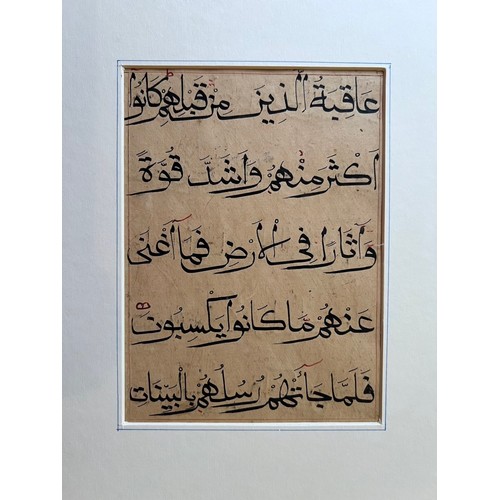 عَاقِبَةُ الَّذِينَ مِن قَبْلِهِمْ كَانُوا
أَكْثَرَ مِنْهُمْ وَأَشَدَّ قُوَّةً
وَآثَارًا فِي الْأَرْضِ فَمَا أَغْنَى
عَنْهُم مَّا كَانُوا يَكْسِبُونَ
فَلَمَّا جَاءَتْهُمْ رُسُلُهُم بِالْبَيِّنَاتِ